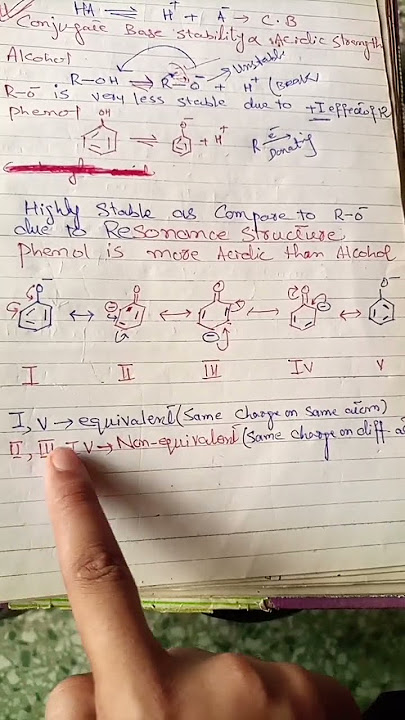 HA ⇌ H⁺ + A⁻ → C.B
Conjugate Base stability α Acidic Strength
Alcohol
R-OH ⇌ R-O⁻ + H⁺ (Weak
Unstable
R-O⁻ is very less stable due to +I effect of R
phenol
OH ⇌ O⁻ + H⁺
R e⁻ Donating
Highly Stable as Compare to R-O⁻
due to Resonance Structure,
phenol is more Acidic than Alcohol
O⁻ ↔ O ⊖ ↔ O ⊖ ↔ O ⊖ ↔ O⁻
I II III IV V
I, V → equivalent (Same charge on same atom)
II, III, IV → Non-equivalent (Same charge on diff